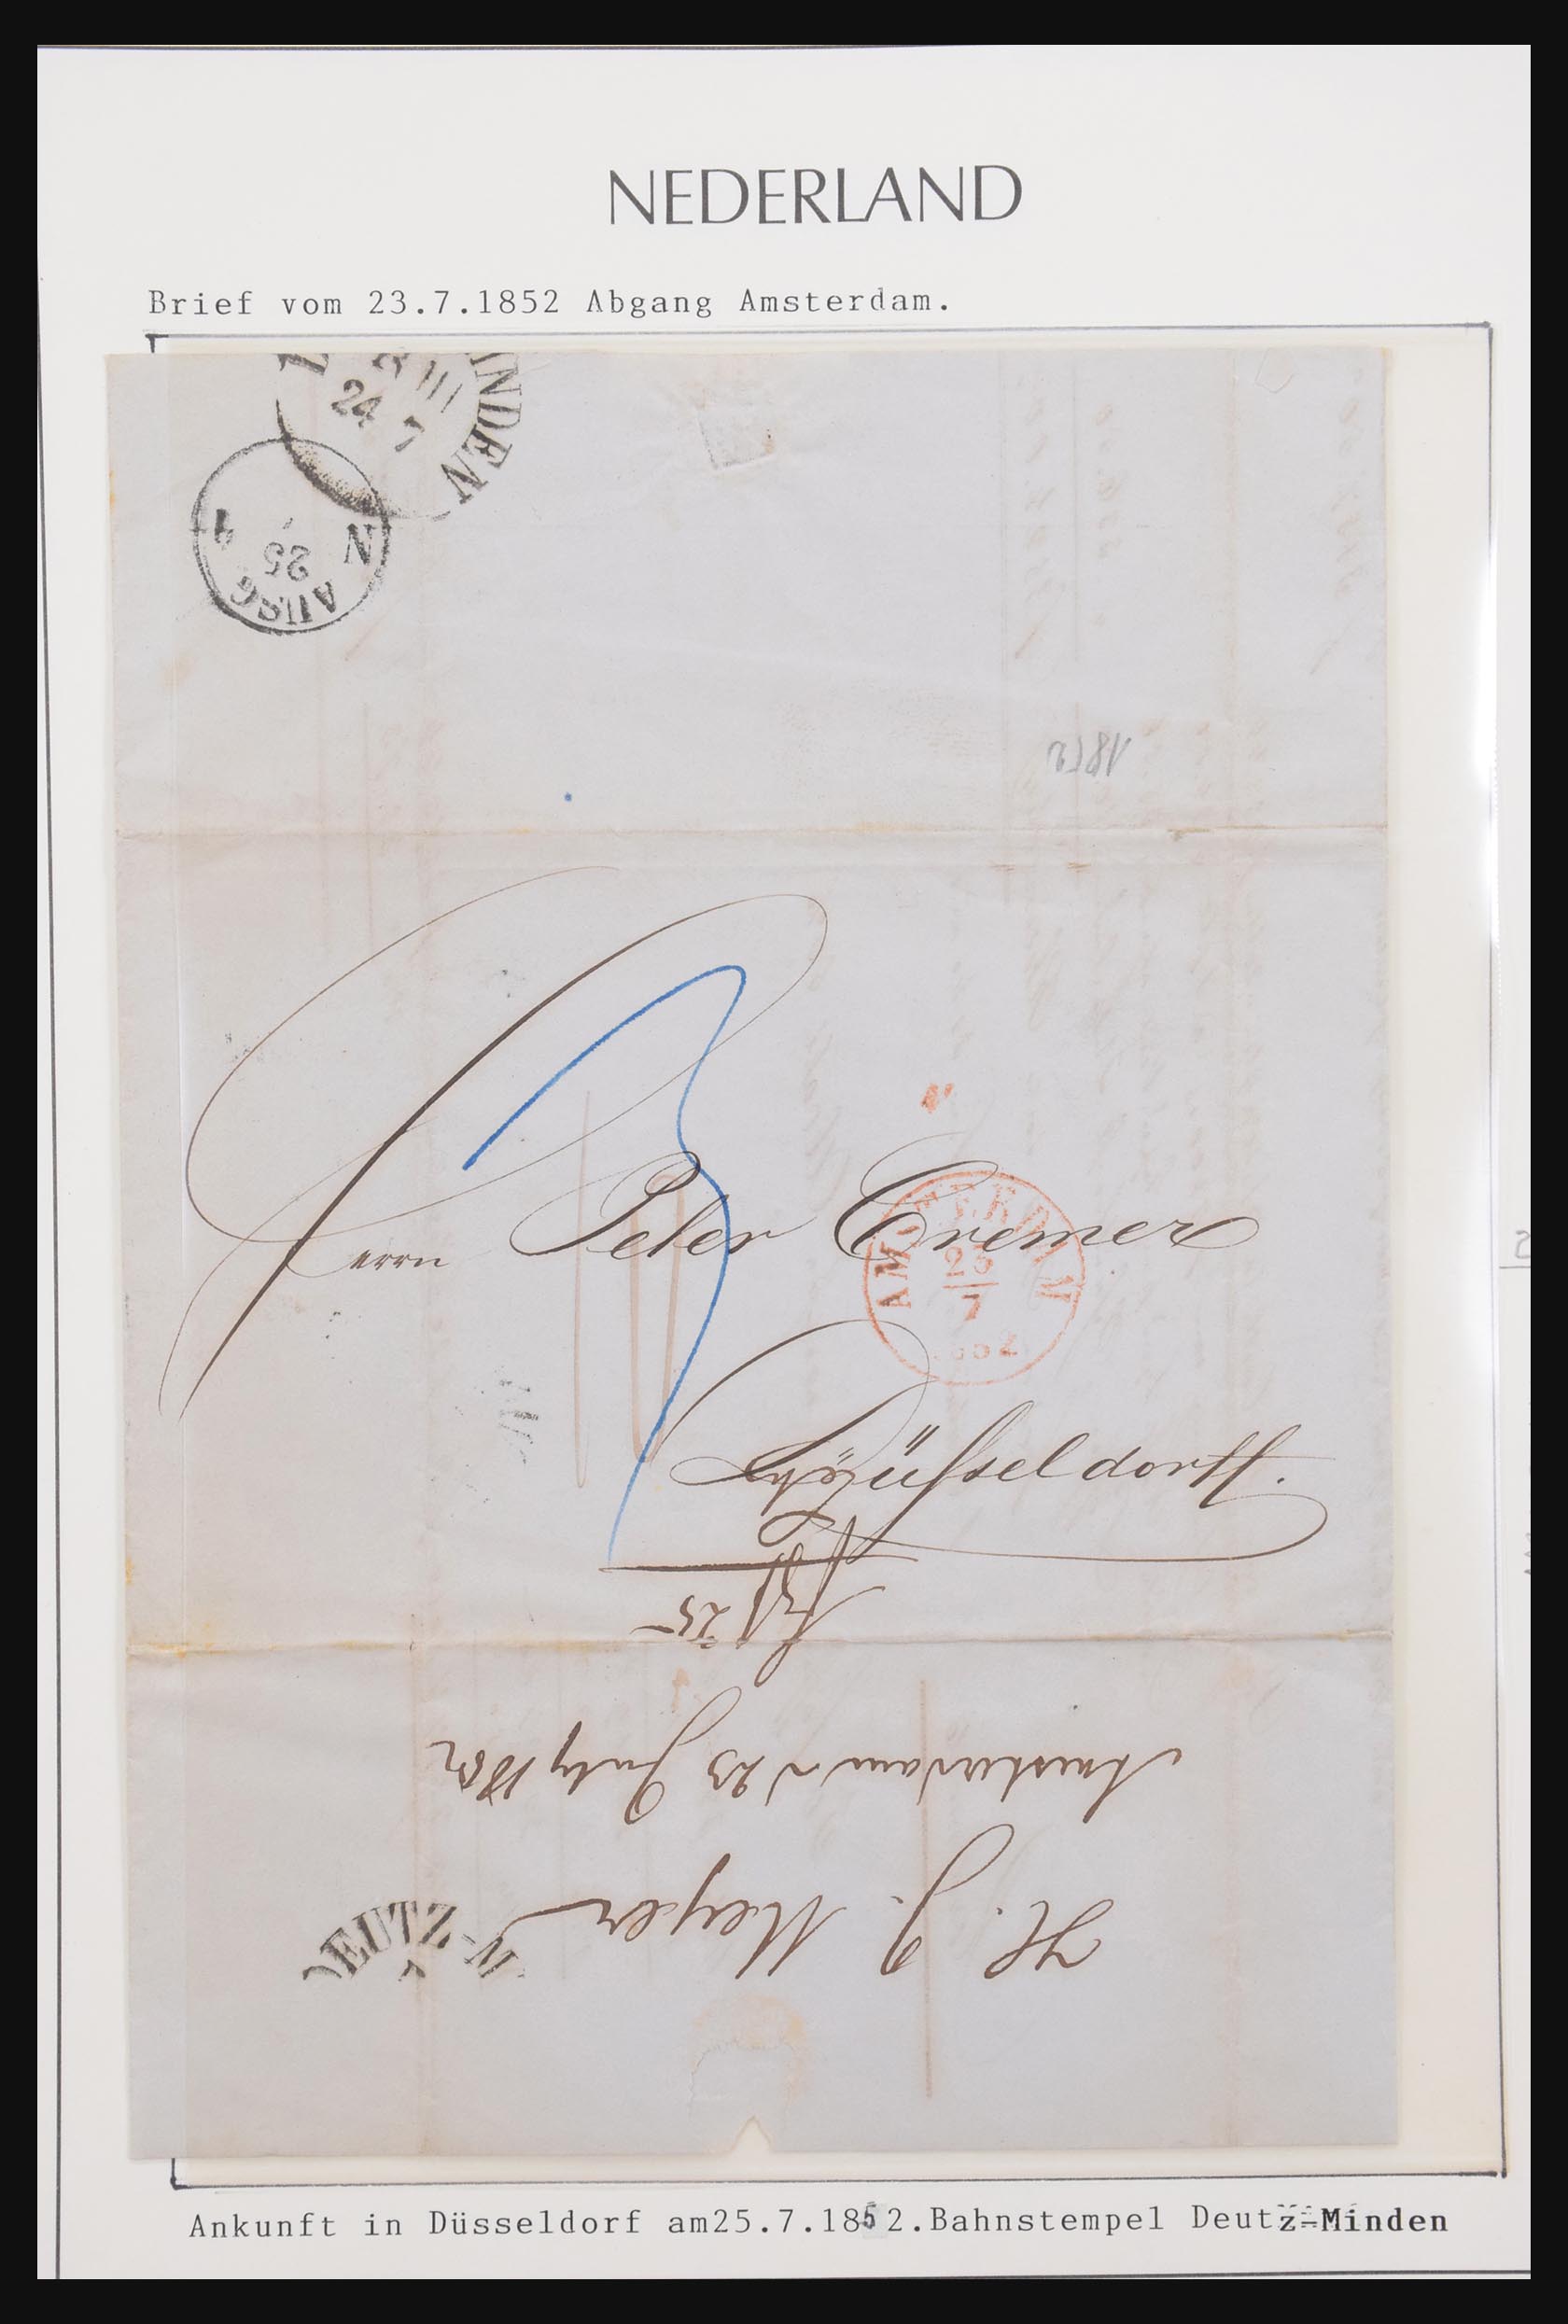 NEDERLAND
Brief vom 23.7.1852 Abgang Amsterdam.
INDEN
24 7
III
AUSG
N 25 4
1852
Herrn Peter Cremer
AMSTERDAM
23
7
1852
Düsseldorff.
25
Amsterdam 23 July 1852
H. J. Meyer
DEUTZ-M
Ankunft in Düsseldorf am25.7.1852.Bahnstempel Deutz-Minden